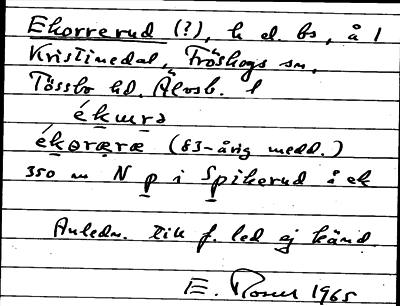 Ekorrerud (?), h d. bs, å 1
Kristinedal, Fröskogs sn,
Tössbo hd. Älvsb. l
ékɯrə
ékɵræræ (83-årig medd.)
350 m N p i Spikerud å ek
Anledn. till f. led ej känd.
E. Rosell 1965